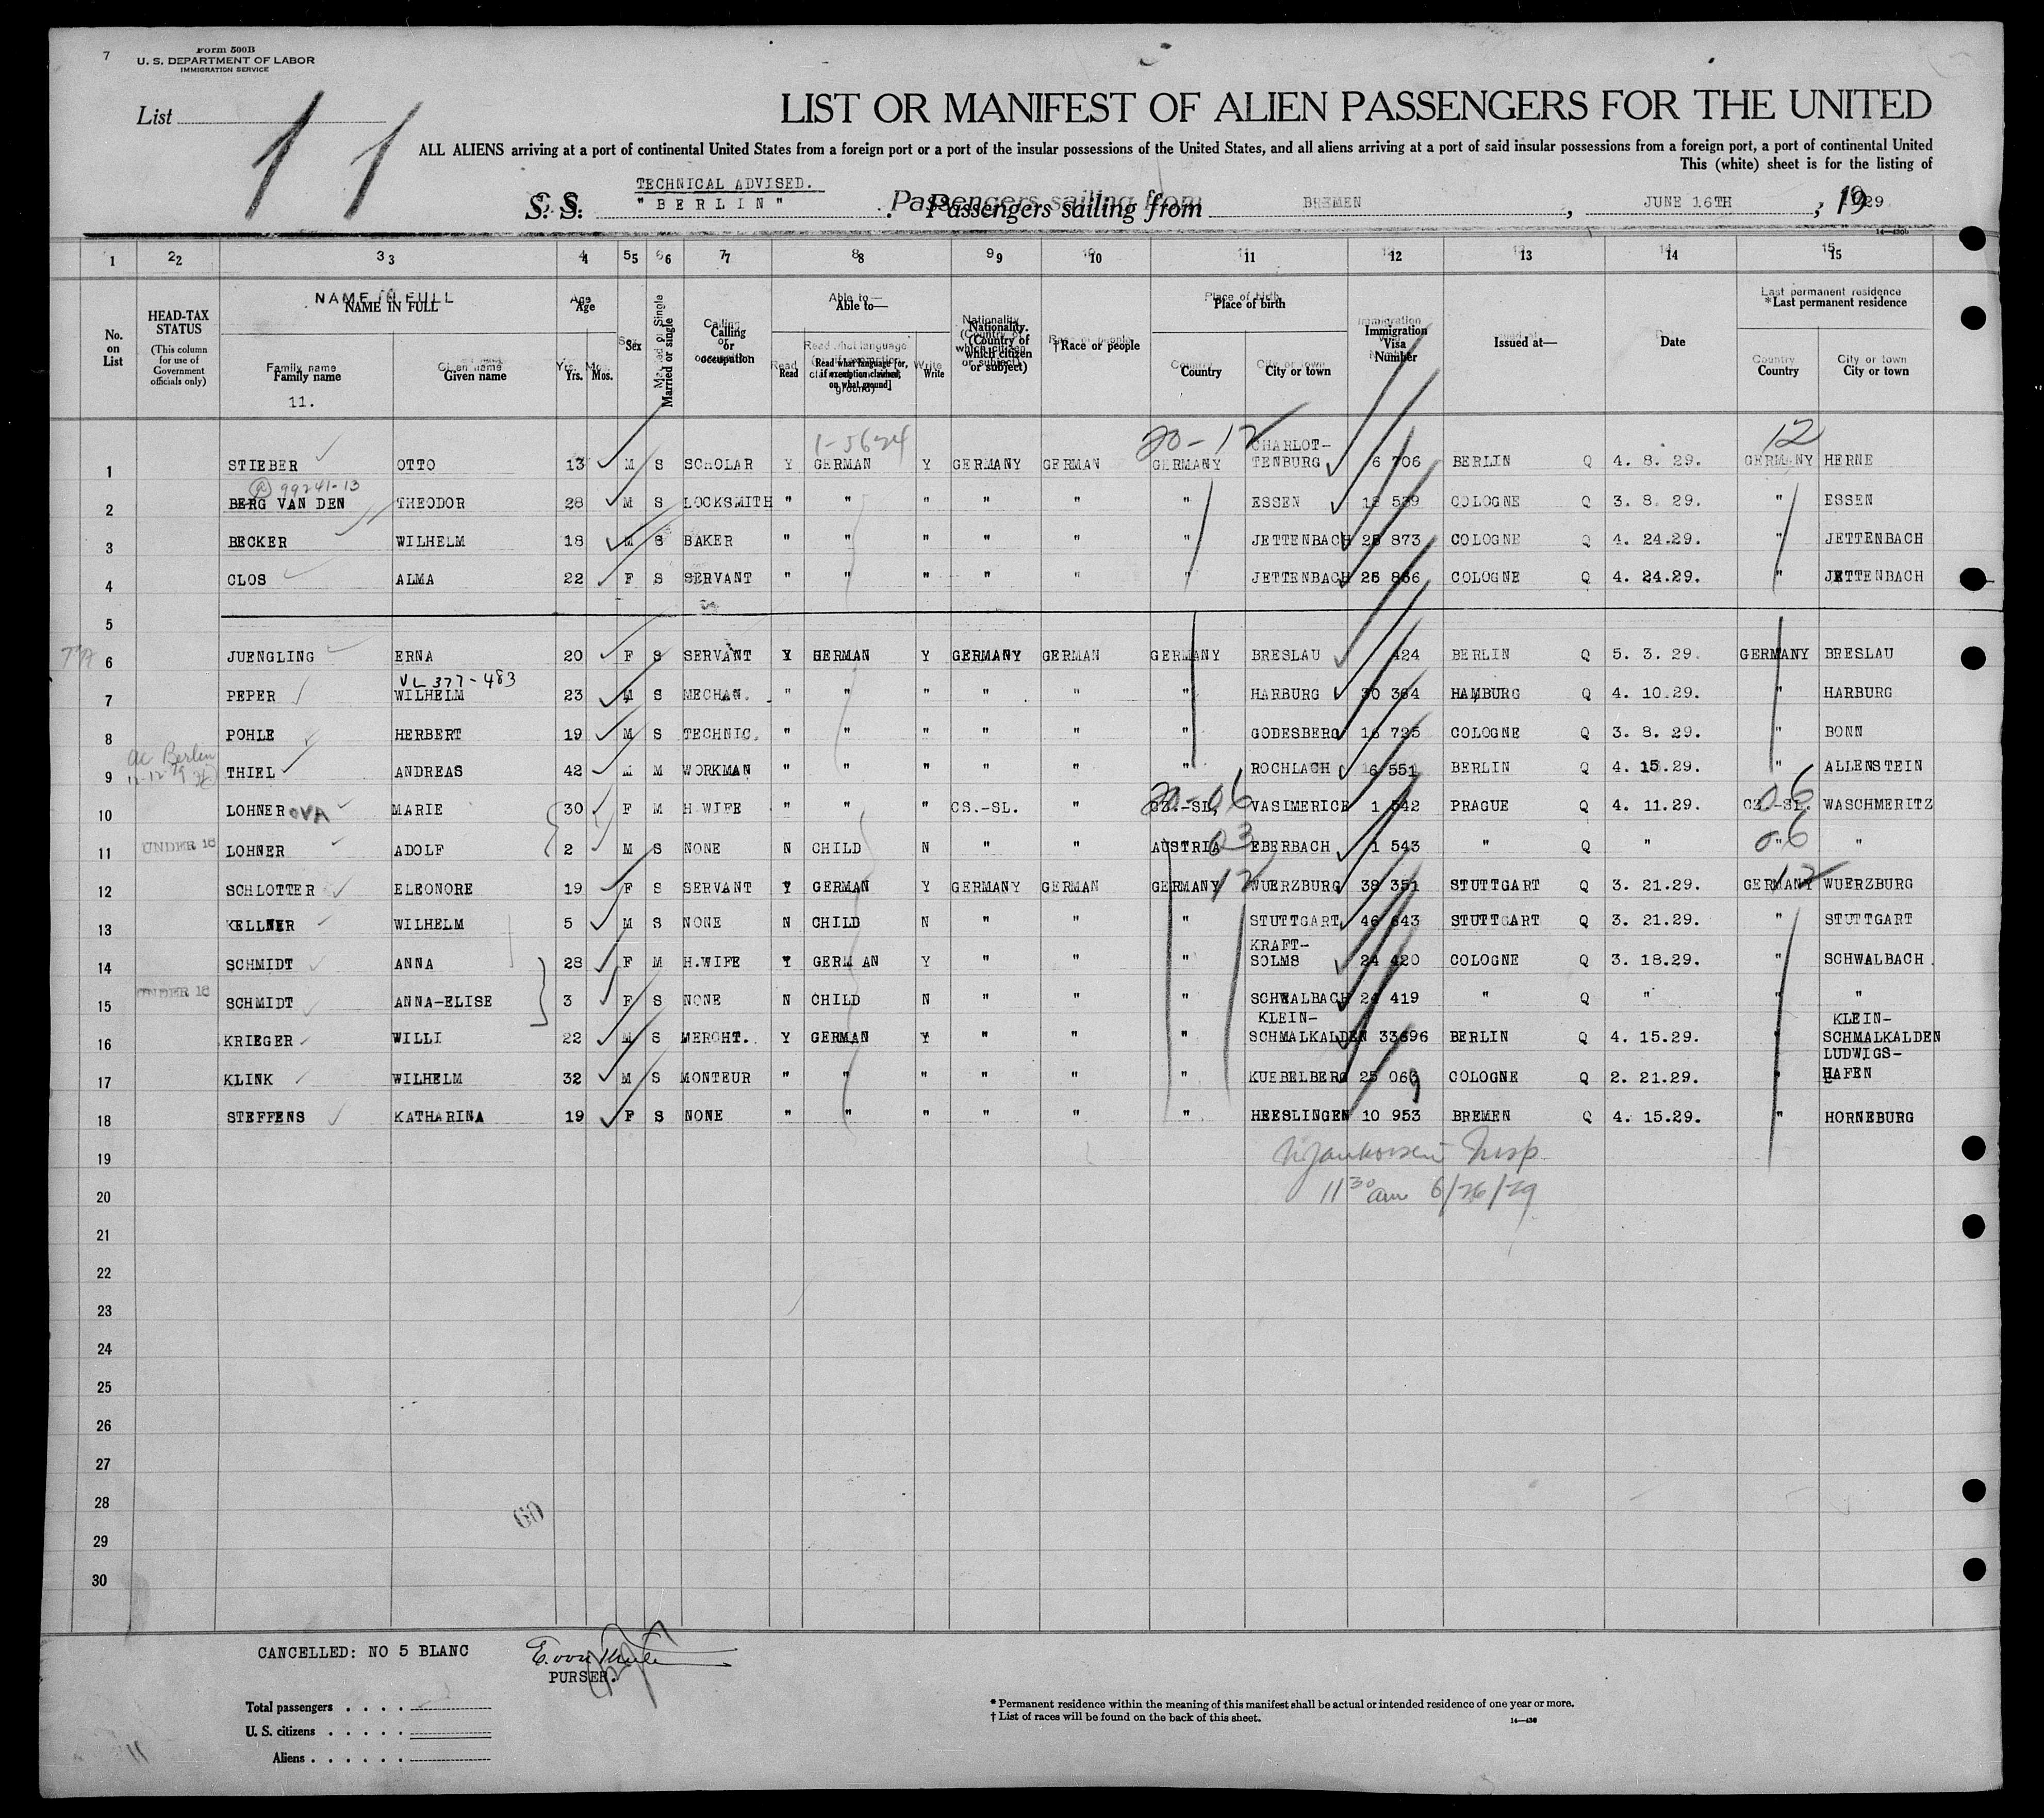 7
Form 500B
U. S. DEPARTMENT OF LABOR
IMMIGRATION SERVICE
List 11
LIST OR MANIFEST OF ALIEN PASSENGERS FOR THE UNITED
ALL ALIENS arriving at a port of continental United States from a foreign port or a port of the insular possessions of the United States, and all aliens arriving at a port of said insular possessions from a foreign port, a port of continental United
This (white) sheet is for the listing of
TECHNICAL ADVISED.
S. S. "BERLIN" Passengers sailing from BREMEN, JUNE 16TH, 1929
1 2 3 4 5 6 7 8 9 10 11 12 13 14 15
No. on List
HEAD-TAX STATUS (This column for use of Government officials only)
NAME IN FULL Family name Given name
Age Yrs. Mos.
Sex
Married or single
Calling or occupation
Able to— Read Read what language [or, if exemption claimed, on what ground] Write
Nationality. (Country of which citizen or subject)
† Race or people
Place of birth Country City or town
Immigration Visa Number
Issued at—
Date
*Last permanent residence Country City or town
11.
1-5624 20-12 12
1 STIEBER OTTO 13 M S SCHOLAR Y GERMAN Y GERMANY GERMAN GERMANY CHARLOT-TENBURG 6 706 BERLIN Q 4. 8. 29. GERMANY HERNE
99241-13
2 BERG VAN DEN THEODOR 28 M S LOCKSMITH " " " " " " ESSEN 539 COLOGNE Q 3. 8. 29. " ESSEN
3 BECKER WILHELM 18 M S BAKER " " " " " " JETTENBACH 25 873 COLOGNE Q 4. 24.29. " JETTENBACH
4 CLOS ALMA 22 F S SERVANT " " " " " " JETTENBACH 25 866 COLOGNE Q 4. 24.29. " JETTENBACH
5
6 JUENGLING ERNA 20 F S SERVANT Y GERMAN Y GERMANY GERMAN GERMANY BRESLAU 424 BERLIN Q 5. 3. 29. GERMANY BRESLAU
VL 377-483
7 PEPER WILHELM 23 M S MECHAN. " " " " " " HARBURG 30 364 HAMBURG Q 4. 10.29. " HARBURG
8 POHLE HERBERT 19 M S TECHNIC. " " " " " " GODESBERG 16 725 COLOGNE Q 3. 8. 29. " BONN
ac Berlin
9 THIEL ANDREAS 42 M M WORKMAN " " " " " " ROCHLACH 6 551 BERLIN Q 4. 15.29. " ALLENSTEIN
20-06 06
10 LOHNER OVA MARIE 30 F M H.WIFE " " " CS.-SL. " CZ.-SL. VASIMERICE 1 542 PRAGUE Q 4. 11.29. CZ.-SL. WASCHMERITZ
11 UNDER 16 LOHNER ADOLF 2 M S NONE N CHILD N " " AUSTRIA 03 EBERBACH 1 543 " Q " 06 " "
12 SCHLOTTER ELEONORE 19 F S SERVANT Y GERMAN Y GERMANY GERMAN GERMANY 12 WUERZBURG 38 351 STUTTGART Q 3. 21.29. GERMANY 12 WUERZBURG
13 KELLNER WILHELM 5 M S NONE N CHILD N " " " STUTTGART 46 643 STUTTGART Q 3. 21.29. " STUTTGART
14 SCHMIDT ANNA 28 F M H.WIFE Y GERMAN Y " " " KRAFT-SOLMS 24 420 COLOGNE Q 3. 18.29. " SCHWALBACH.
15 UNDER 16 SCHMIDT ANNA-ELISE 3 F S NONE N CHILD N " " " SCHWALBACH 24 419 " Q " " "
16 KRIEGER WILLI 22 M S MERCHT. Y GERMAN Y " " " KLEIN-SCHMALKALDEN 33696 BERLIN Q 4. 15.29. " KLEIN-SCHMALKALDEN
17 KLINK WILHELM 32 M S MONTEUR " " " " " " KUEBELBERG 25 069 COLOGNE Q 2. 21.29. " LUDWIGS-HAFEN
18 STEFFENS KATHARINA 19 F S NONE " " " " " " HEESLINGEN 10 953 BREMEN Q 4. 15.29. " HORNEBURG
19
20 11 30 am 6/26/29
21
22
23
24
25
26
27
28
29
30
60
CANCELLED: NO 5 BLANC
PURSER.
Total passengers
U. S. citizens
Aliens
* Permanent residence within the meaning of this manifest shall be actual or intended residence of one year or more.
† List of races will be found on the back of this sheet.
14—430
11